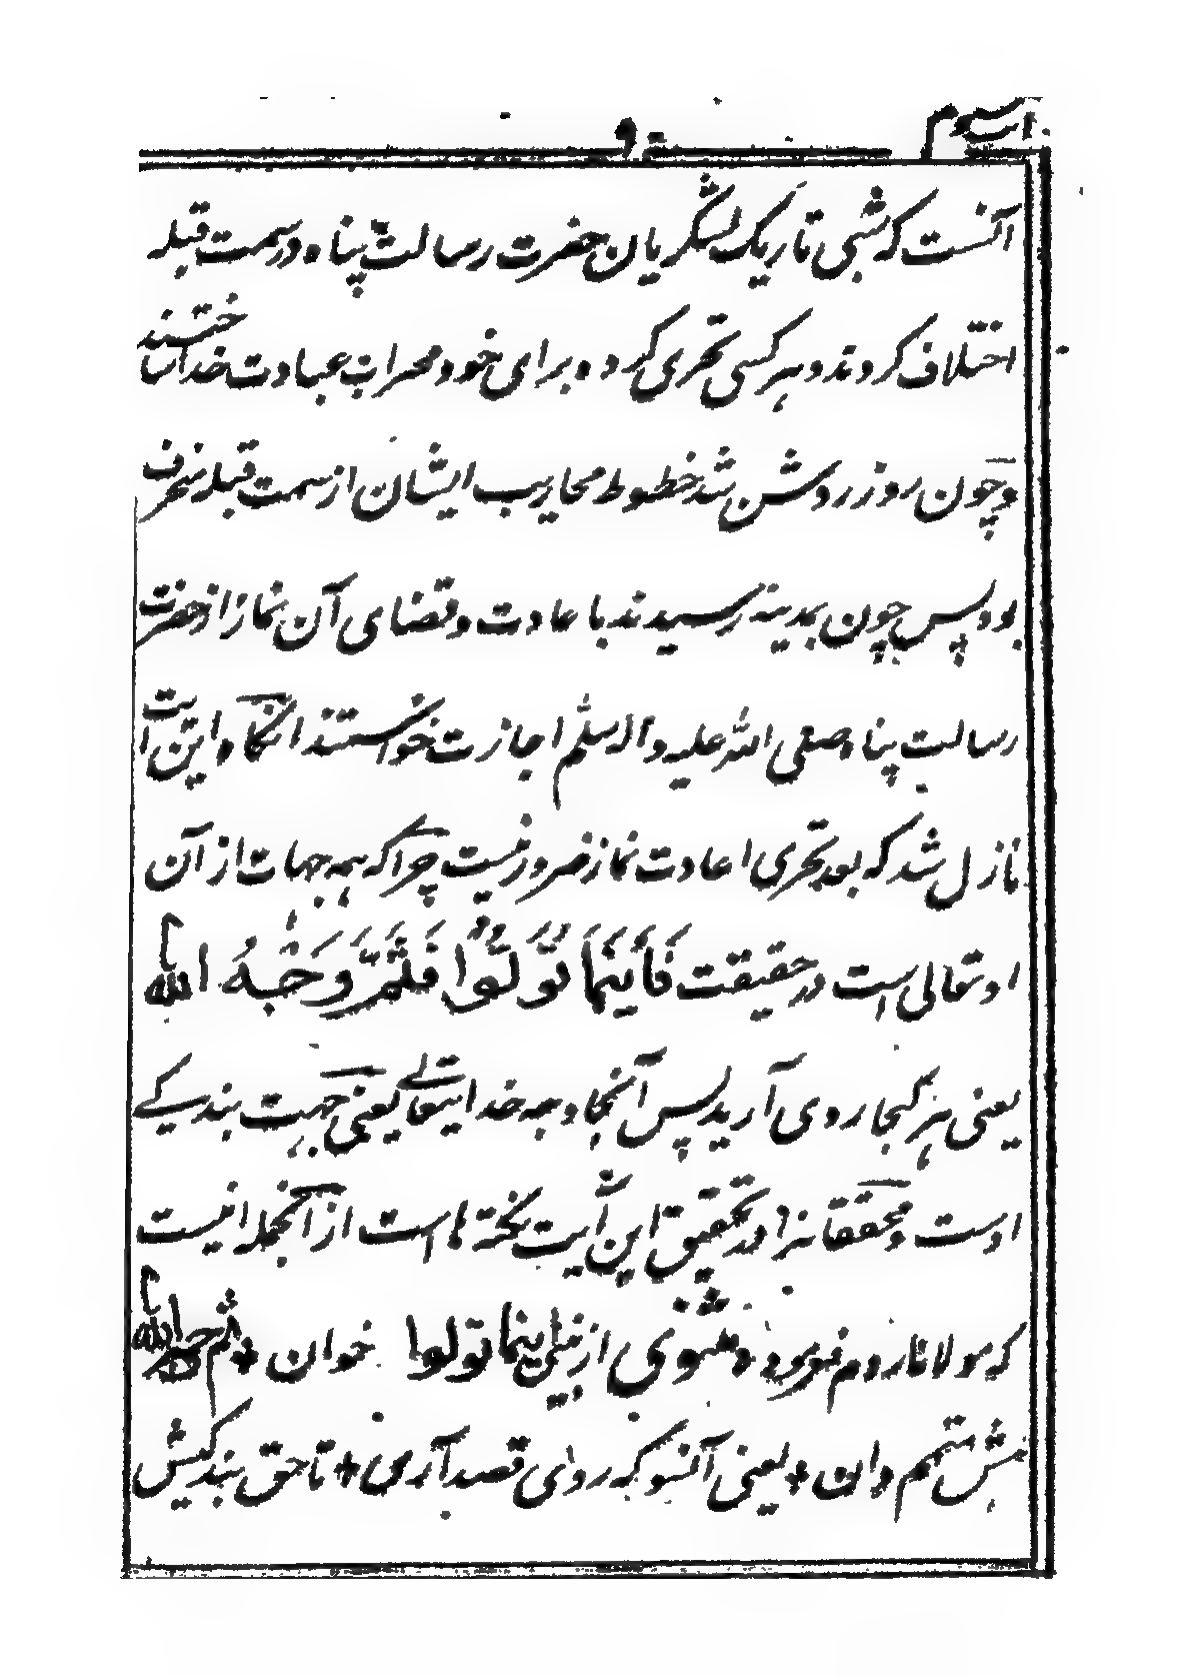 باب سوم
۹
آنست که شبی تاریک لشکریان حضرت رسالت پناه در سمت قبله
اختلاف کردند و هر کسی تحری کرده برای خود محراب عبادت خدا ساختند
و چون روز روشن شد خطوط محاریب ایشان از سمت قبله منحرف
بود پس چون بمدینه رسیدند با عادت و قضای آن نماز از حضرت
رسالت پناه صلی الله علیه و آله وسلم اجازت خواستند آنگاه این آیت
نازل شد که بعد تحری اعادت نماز ضرور نیست چرا که همه جهات از آن
او تعالی است در حقیقت فَأَيْنَمَا تُوَلُّوا فَثَمَّ وَجْهُ الله
یعنی هر کجا روی آرید پس آنجا وجه خدایتعالے یعنی جهت بندگے
اوست و محققانرا در تحقیق این آیت نکته هاست از آنجمله اینست
که مولانا روم فرموده مثنوی از نبی اینما تولوا خوان * ثم وجه الله
متمم دان * یعنی آنسو که روی قصد آری * تا حق بندگیش